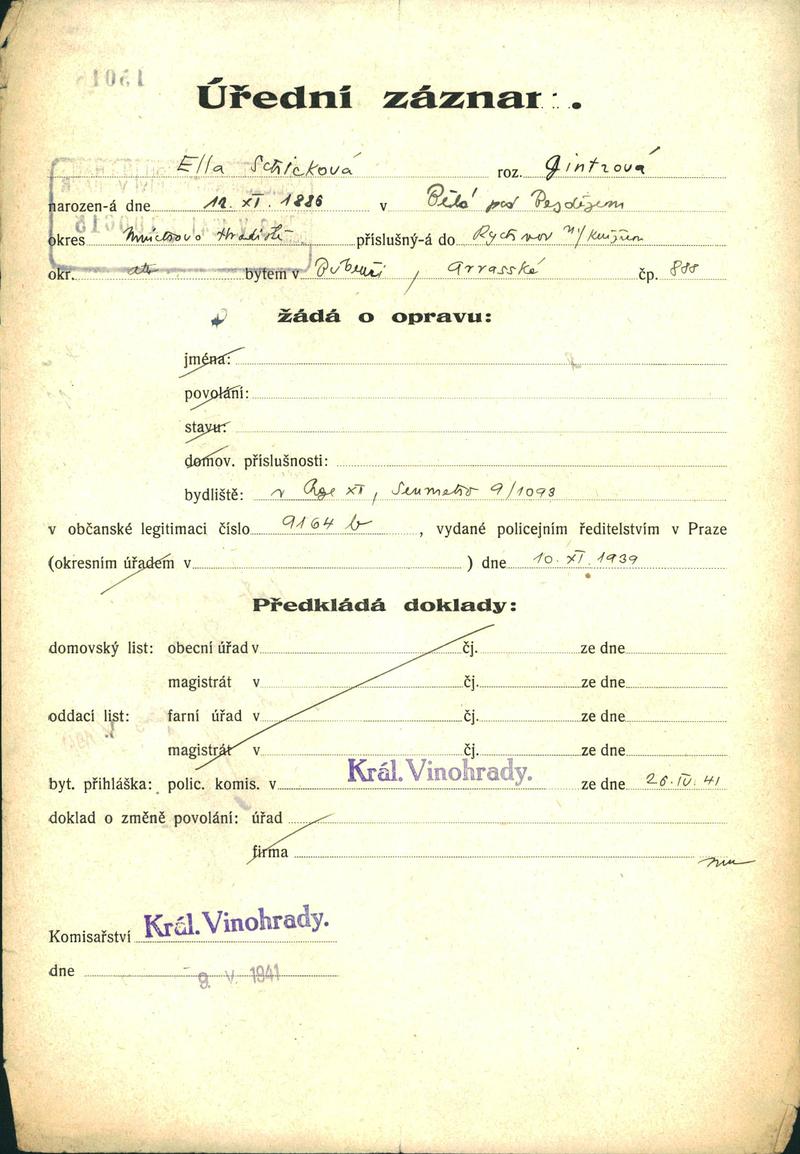 Úřední záznam.
Ella Schicková roz. Gintzová
narozen-á dne 12. XI. 1886 v Bělá pod Bezdězem
okres Mnichovo Hradiště příslušný-á do Rychnov n/Kněžnou
okr. bytem v Bubenči, Arrasské čp. 888
žádá o opravu:
jména:
povolání:
stavu:
domov. příslušnosti:
bydliště: v Praze XI, 9/1093
v občanské legitimaci číslo 9164 b, vydané policejním ředitelstvím v Praze
(okresním úřadem v ) dne 10. XI. 1939
Předkládá doklady:
domovský list: obecní úřad v čj. ze dne
magistrát v čj. ze dne
oddací list: farní úřad v čj. ze dne
magistrát v čj. ze dne
byt. přihláška: polic. komis. v Král. Vinohrady. ze dne 26. IV. 41
doklad o změně povolání: úřad
firma
Komisařství Král. Vinohrady.
dne 9. V. 1941